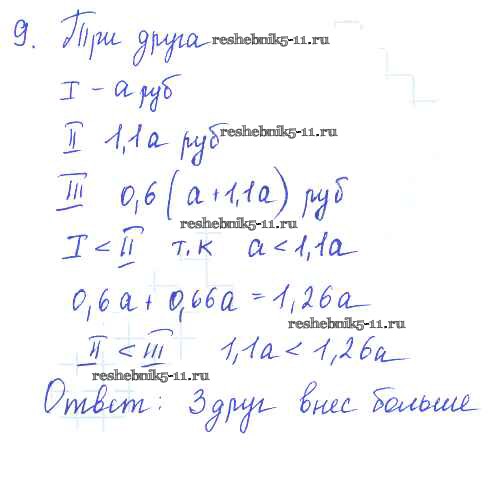 9. Три друга reshebnik5-11.ru
I - а руб
II 1,1а руб reshebnik5-11.ru
III 0,6(а+1,1а) руб
reshebnik5-11.ru
I < II т.к а < 1,1а
0,6а + 0,66а = 1,26а
reshebnik5-11.ru
II < III 1,1а < 1,26а
reshebnik5-11.ru
Ответ: 3 друг внес больше